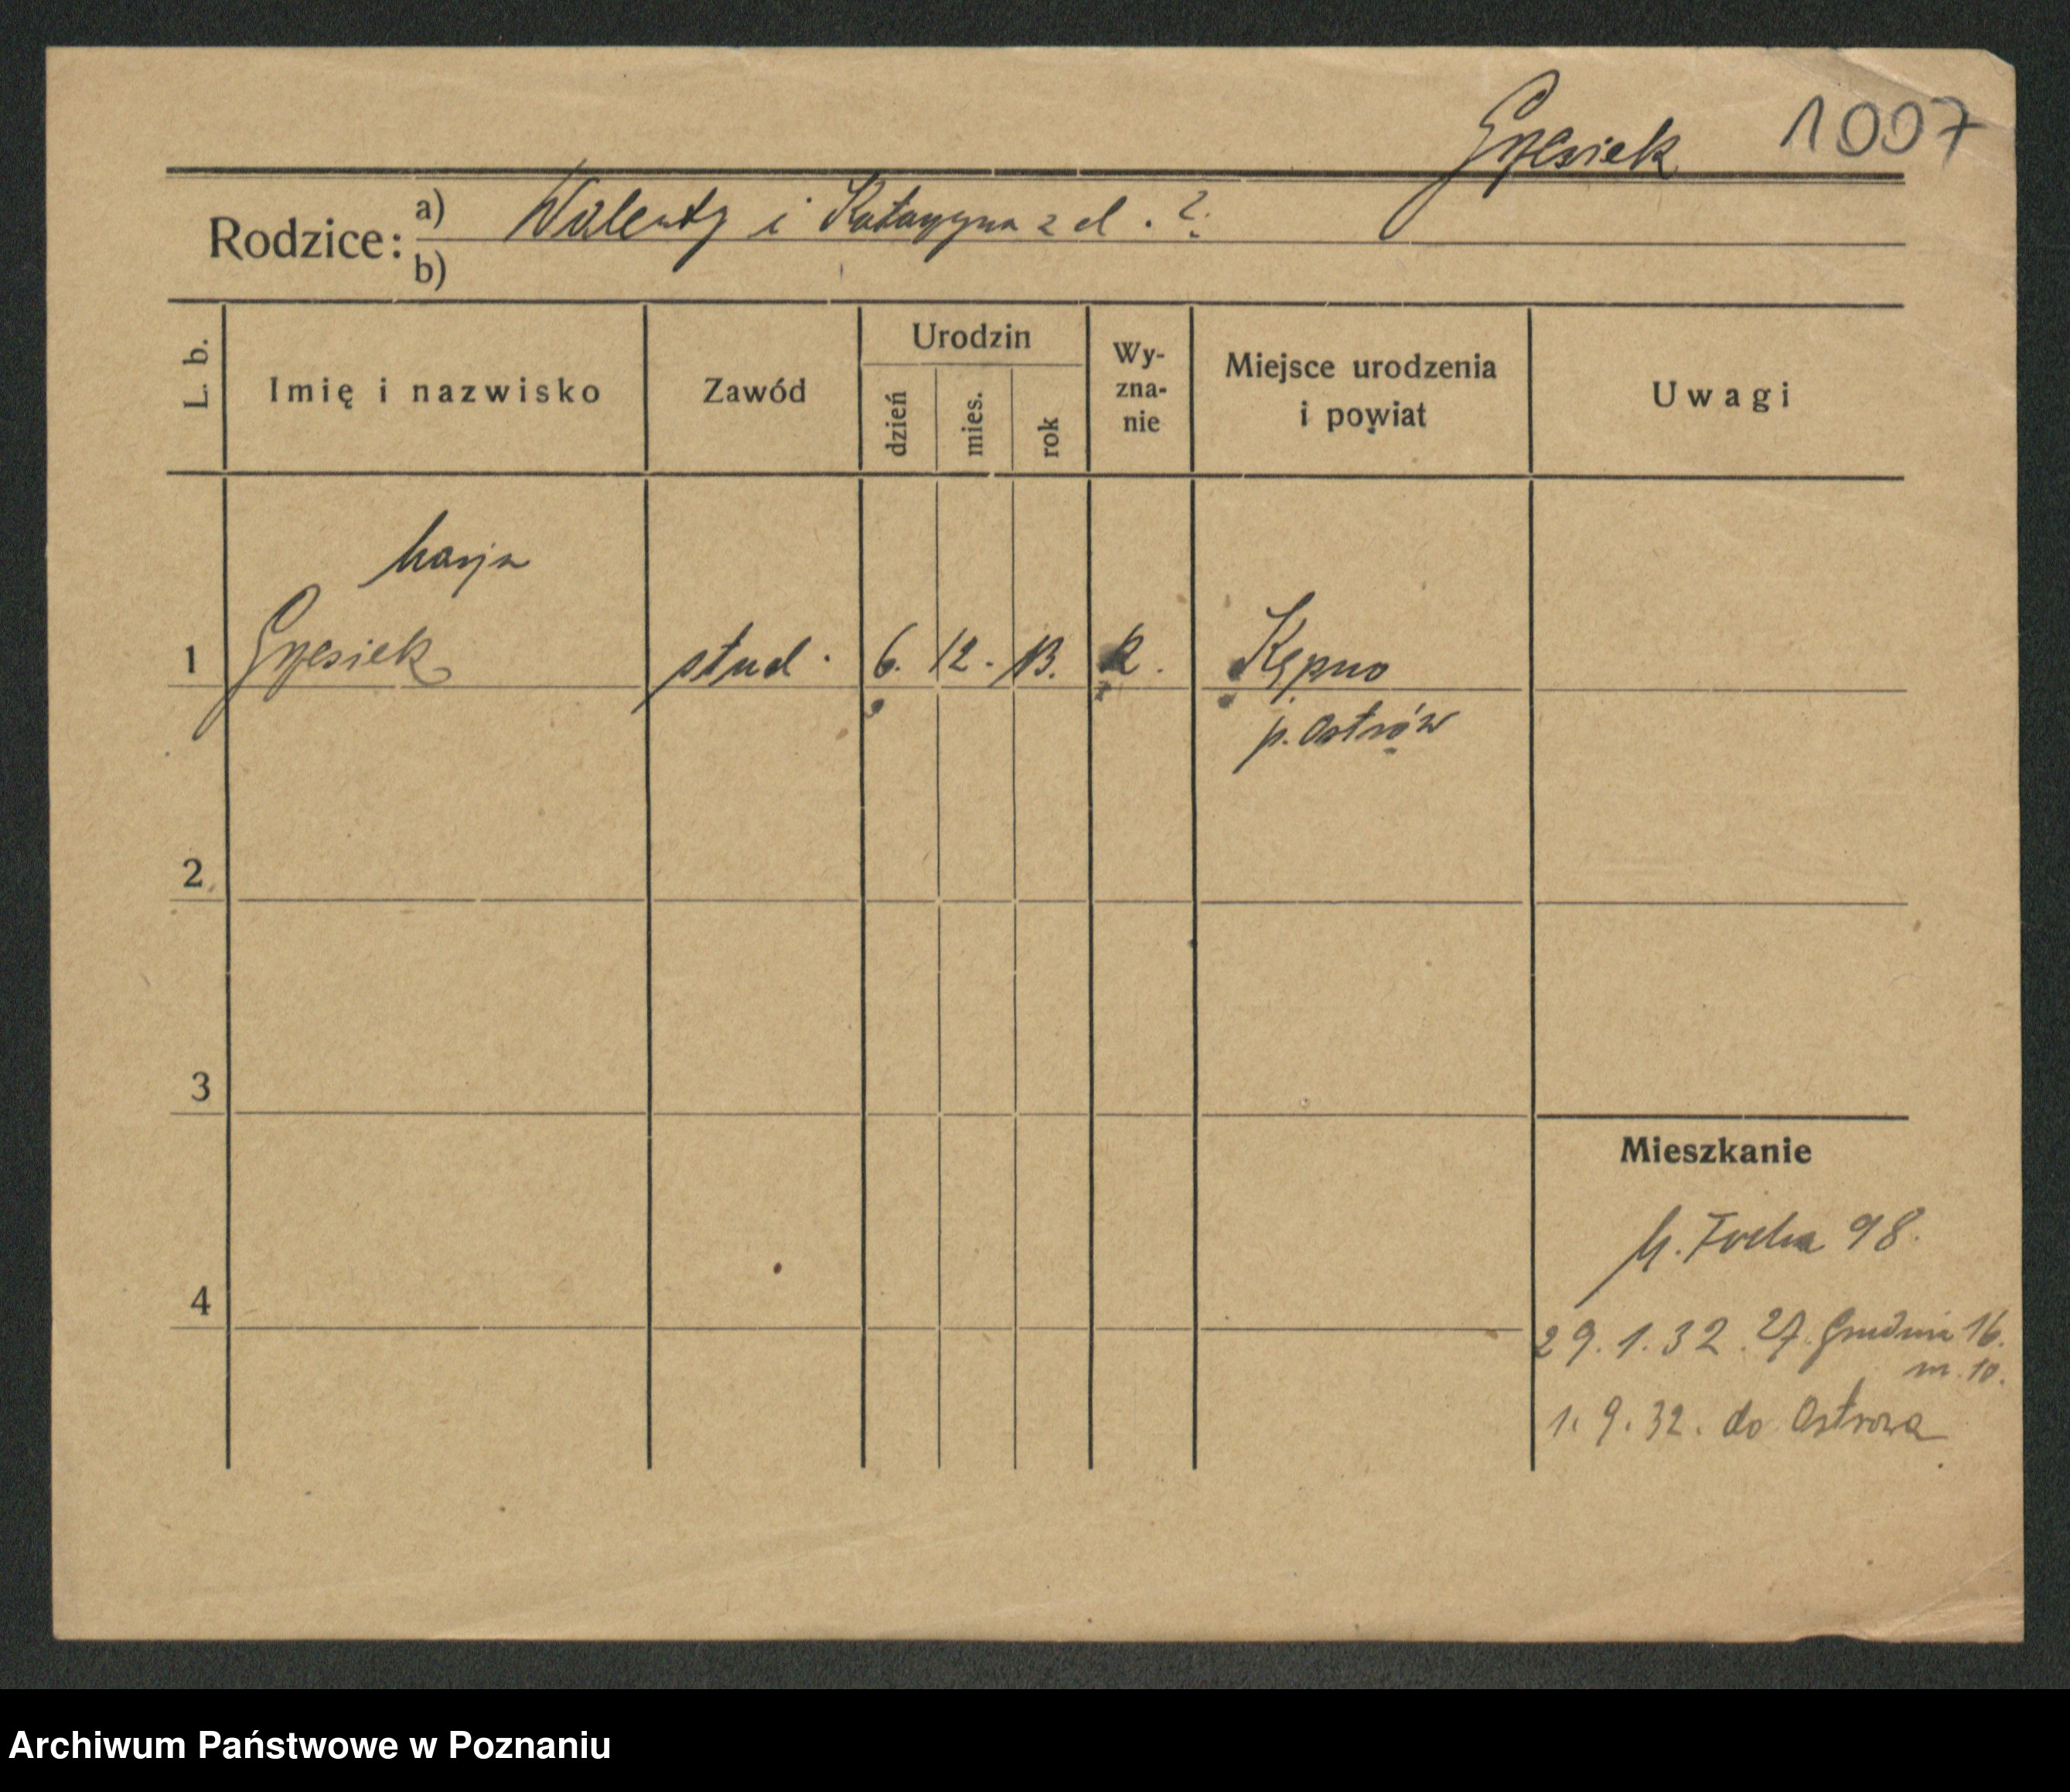 Grzesiek 1007
Rodzice: a) Walenty i Katarzyna z d. ?
b)
L. b.
Imię i nazwisko
Zawód
Urodzin
dzień
mies.
rok
Wy-
zna-
nie
Miejsce urodzenia
i powiat
Uwagi
Marja
1 Grzesiek stud. 6. 12. 13. k. Kępno
p. Ostrów
2
3
Mieszkanie
M. Focha 98.
4
29.1.32. 27 Grudnia 16.
m. 10.
1.9.32. do Ostrowa
Archiwum Państwowe w Poznaniu